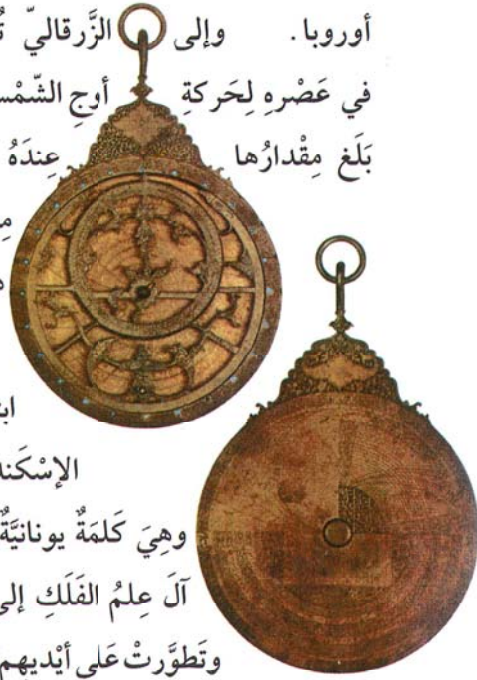 أوروبا. وإلى الزَّرقاليّ
في عَصْرِهِ لِحَركةِ أوجِ الشّمْس
بَلَغ مِقْدارُها عِندَهُ
الإسْكَند
وهِيَ كَلمَةٌ يونانيَّةٌ
آلَ عِلمُ الفَلَكِ إلى
وتَطوَّرتْ عَلى أيْديهِم